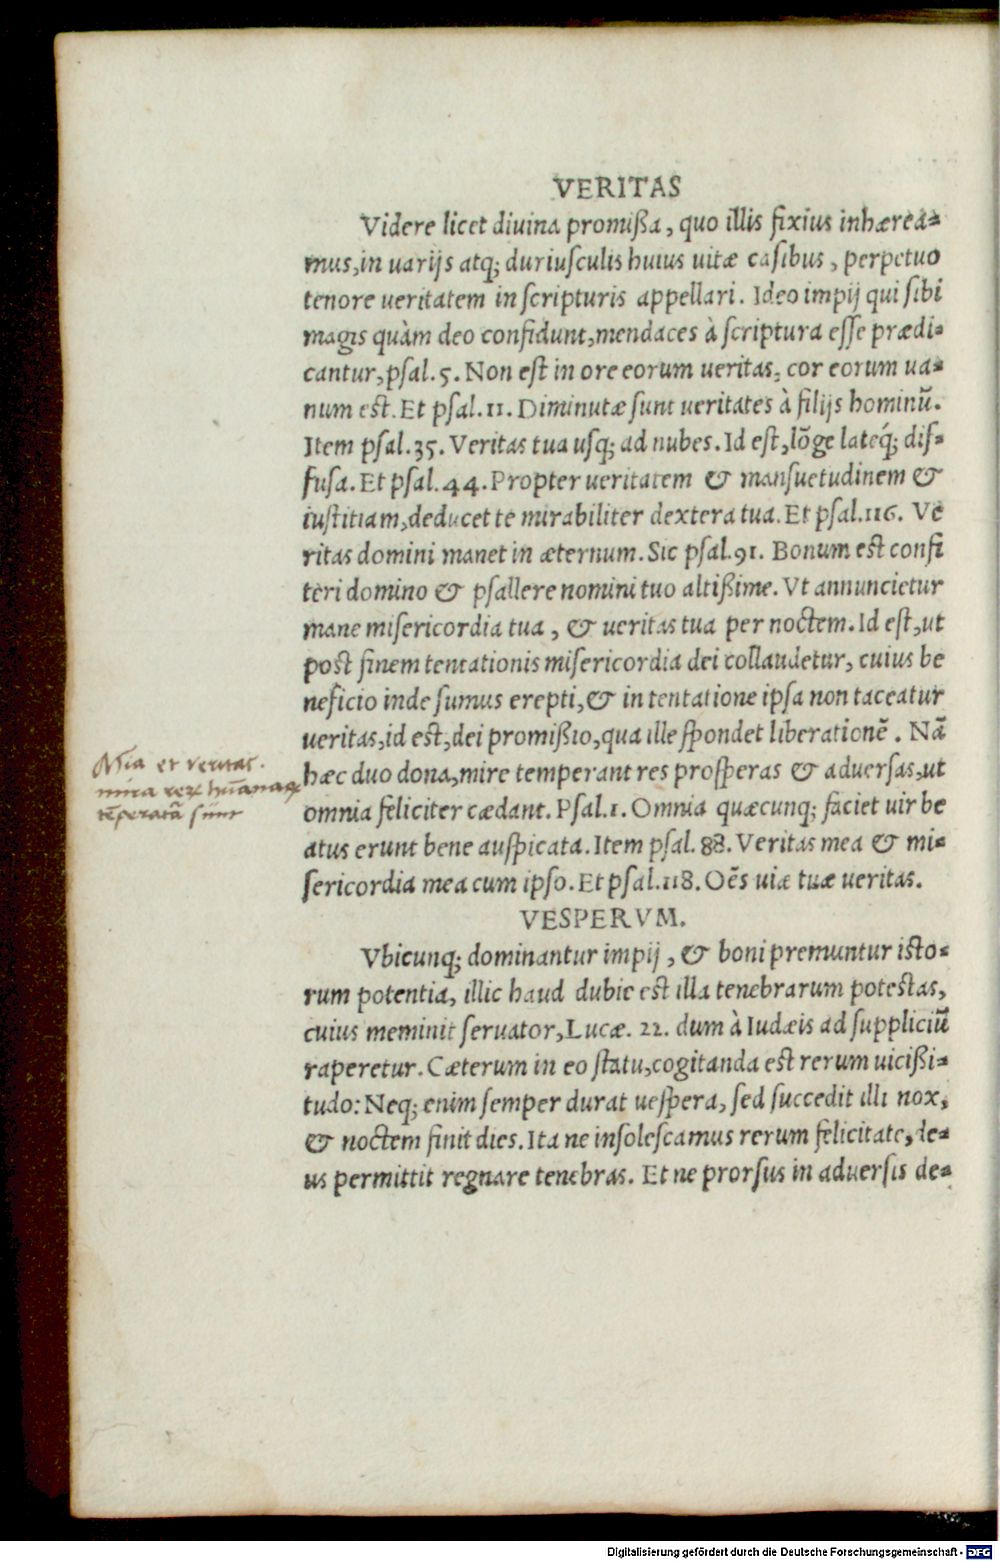 VERITAS
Videre licet diuina promißa, quo illis fixius inhærea-
mus, in uarijs atq; duriusculis huius uitæ casibus, perpetuo
tenore ueritatem in scripturis appellari. Ideo impij qui sibi
magis quàm deo confidunt, mendaces à scriptura esse prædi-
cantur, psal. 5. Non est in ore eorum ueritas, cor eorum ua-
num est. Et psal. 11. Diminutæ sunt ueritates à filijs hominū.
Item psal. 35. Veritas tua usq; ad nubes. Id est, lōge lateq́; dif-
fusa. Et psal. 44. Propter ueritatem & mansuetudinem &
iustitiam, deducet te mirabiliter dextera tua. Et psal. 116. Ve
ritas domini manet in æternum. Sic psal. 91. Bonum est confi
teri domino & psallere nomini tuo altißime. Vt annuncietur
mane misericordia tua, & ueritas tua per noctem. Id est, ut
post finem tentationis misericordia dei collaudetur, cuius be
neficio inde sumus erepti, & in tentatione ipsa non taceatur
ueritas, id est, dei promißio, qua ille spondet liberationē. Nā
hæc duo dona, mire temperant res prosperas & aduersas, ut
omnia feliciter cædant. Psal. 1. Omnia quæcunq; faciet uir be
atus erunt bene auspicata. Item psal. 88. Veritas mea & mi-
sericordia mea cum ipso. Et psal. 118. Oēs uiæ tuæ ueritas.
Mīa et veritas.
mira rerū hūanaꝝ
tēperatā sunt
VESPERVM.
Vbicunq; dominantur impij, & boni premuntur isto-
rum potentia, illic haud dubie est illa tenebrarum potestas,
cuius meminit seruator, Lucæ. 22. dum à Iudæis ad suppliciū
raperetur. Cæterum in eo statu, cogitanda est rerum uicißi-
tudo: Neq; enim semper durat uespera, sed succedit illi nox,
& noctem finit dies. Ita ne insolescamus rerum felicitate, de-
us permittit regnare tenebras. Et ne prorsus in aduersis de-
Digitalisierung gefördert durch die Deutsche Forschungsgemeinschaft - DFG